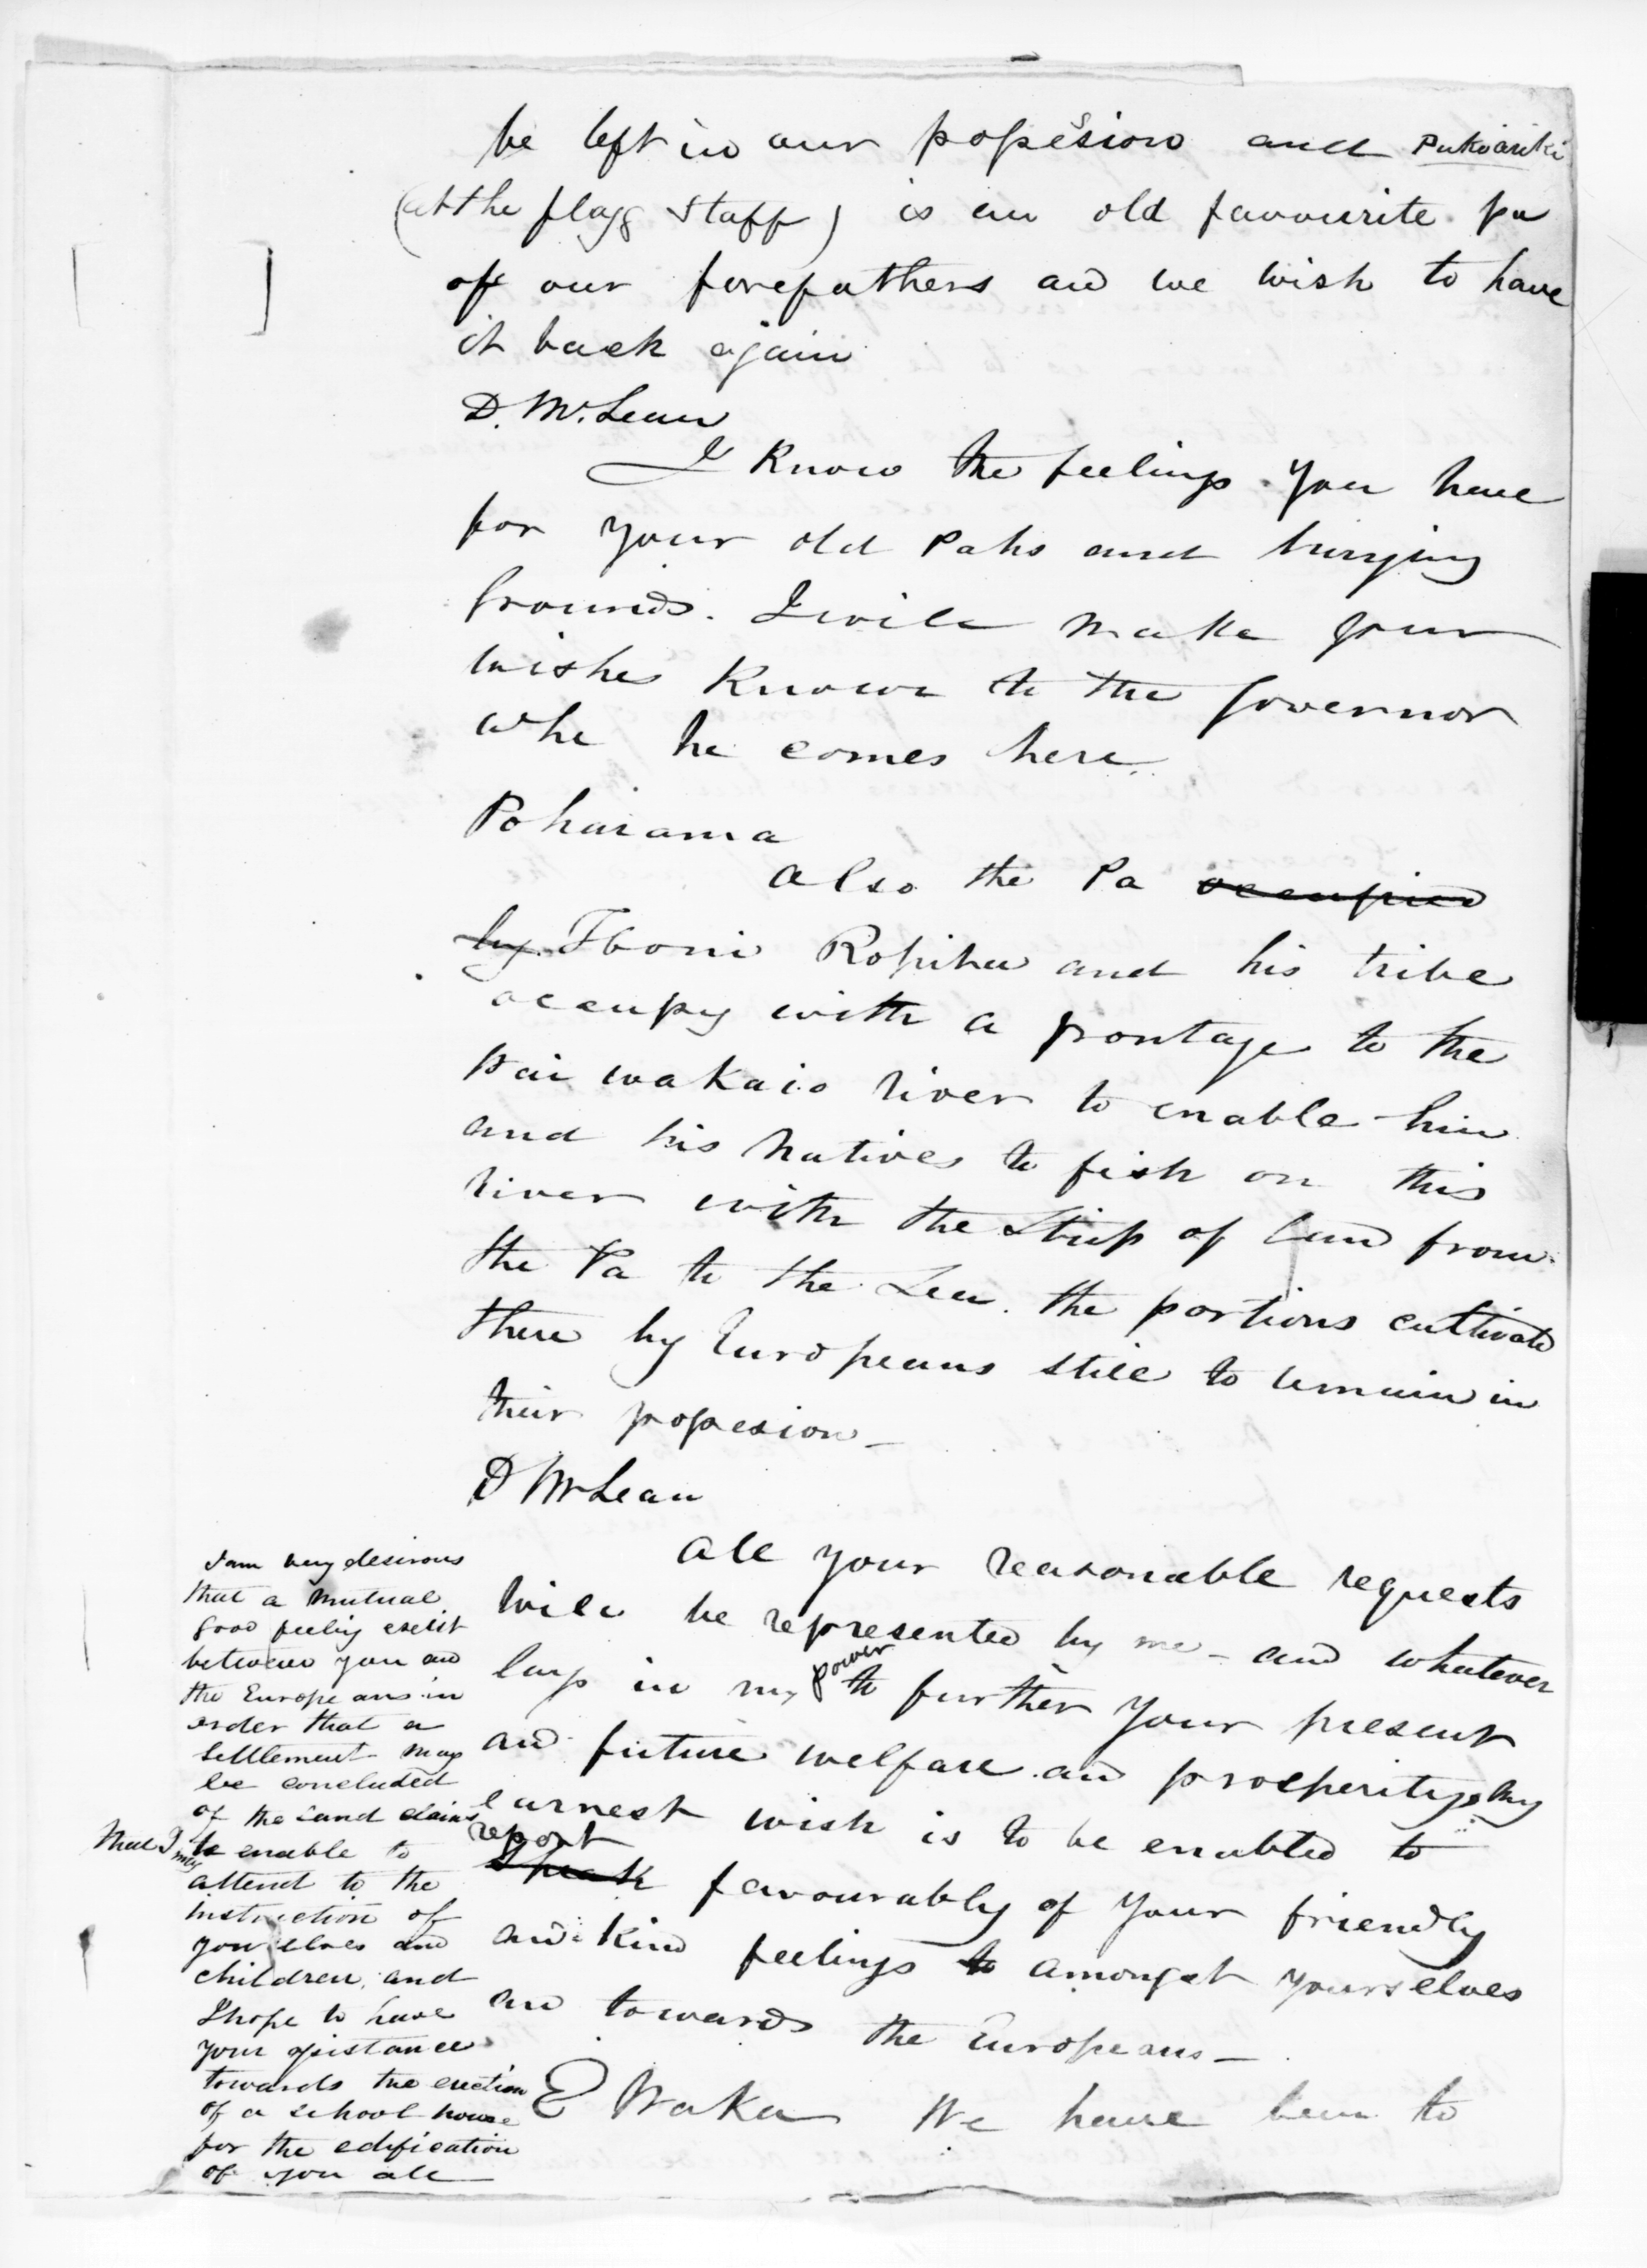 be left in our possession and Pukiariki
(at the flagg staff) is an old favourite pa
of our forefathers and we wish to have
it back again
D. McLean
I Know the feelings you have
for your old Pahs and burying
Grounds. I will make your
wishes Known to the Governor
whe he comes here.
Poharama
Also the Pa occupied
by Ihoni Ropiha and his tribe
occupy with a frontage to the
Wai wakaio river to enable him
and his Natives to fish on this
river with the Strip of land from
the Pa to the Sea. the portions cultivated
there by Europeans still to remain in
their possesion -
D McLean
All your reasonable requests
will be represented by me - and whatever
lays in my power to further your present
and future welfare and prosperity, my
earnest wish is to be enabled to
report
Speak favourably of your friendly
and Kind feelings to amongst yourselves
and towards the Europeans -
E Waka We have been to
I am very desirous
that a mutual
good feeling exist
between you and
the Europeans in
order that a
settlement may
be concluded
of the Land claims
that I may to enable to
attend to the
instruction of
yourselves and
children, and
I hope to have
your assistance
towards the erection
of a school house
for the edification
of you all